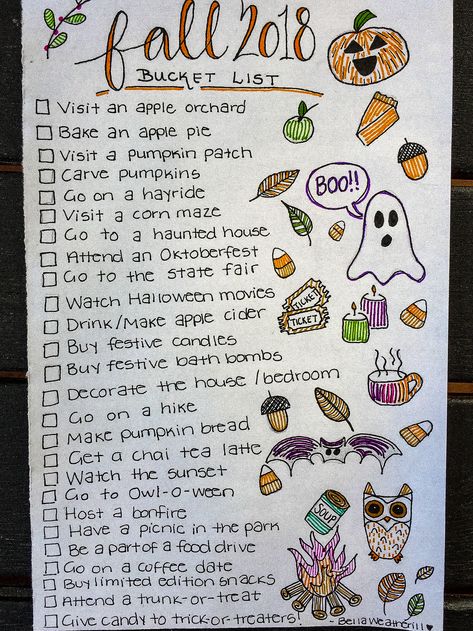 fall 2018
BUCKET LIST
Visit an apple orchard
Bake an apple pie
Visit a pumpkin patch
Carve pumpkins
Go on a hayride
Visit a corn maze
Go to a haunted house
Attend an Oktoberfest
Go to the state fair
Watch Halloween movies
Drink/Make apple cider
Buy festive candles
Buy festive bath bombs
Decorate the house/bedroom
Go on a hike
Make pumpkin bread
Get a chai tea latte
Watch the sunset
Go to Owl-o-ween
Host a bonfire
Have a picnic in the park
Be a part of a food drive
Go on a coffee date
Buy limited edition snacks
Attend a trunk-or-treat
Give candy to trick-or-treaters!
BOO!!
TICKET
TICKET
SOUP
- Bella Weatherill